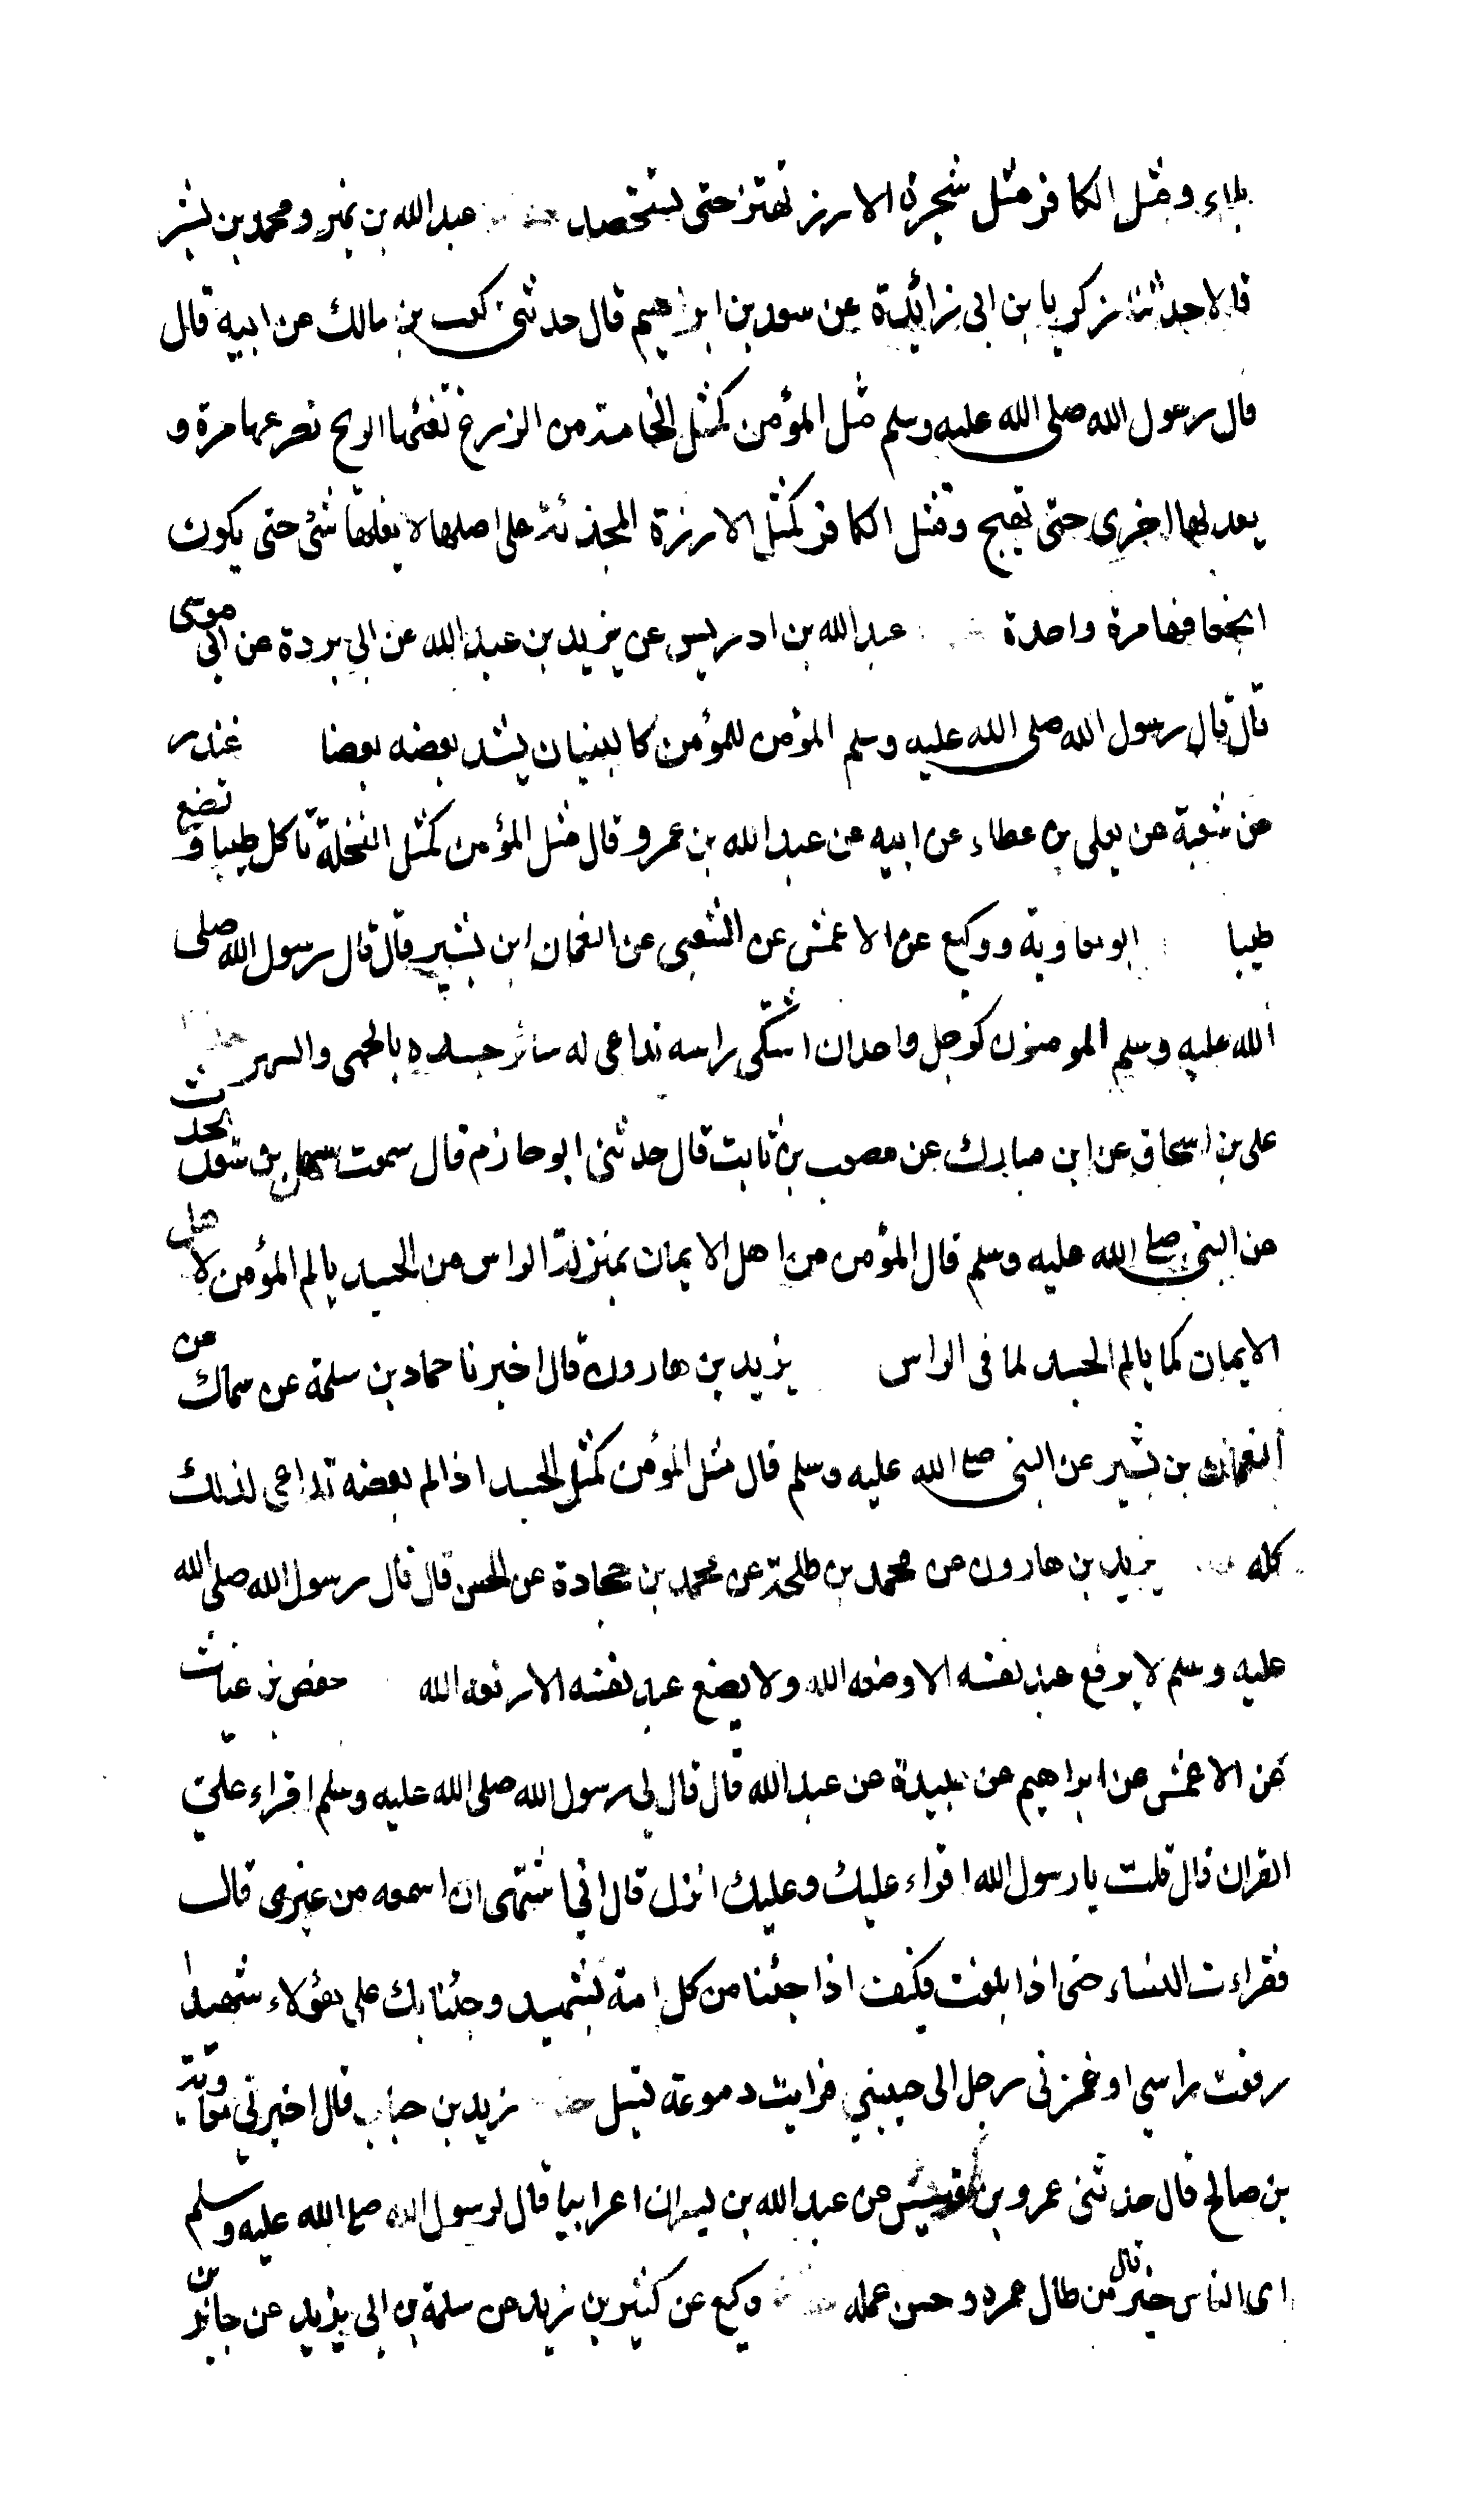 بلاء ومثل الكافر مثل شجرة الارز تهتز حتى تستحصد عبد الله بن نمير ومحمد بن بشر
قالا حدثنا زكريا بن ابى زائدة عن سعد بن ابراهيم قال حدثنى كعب بن مالك عن ابيه قال
قال رسول الله صلى الله عليه وسلم مثل المؤمن كمثل الخامة من الزرع تفئها الريح تصرعها مرة و
يعدلها اخرى حتى تهيج ومثل الكافر كمثل الارزة المجذئة على اصلها لا يفلها شئ حتى يكون
انجعافها مرة واحدة عبد الله بن ادريس عن يزيد بن عبد الله عن ابى بردة عن ابى موسى
قال قال رسول الله صلى الله عليه وسلم المؤمن للمؤمن كالبنيان يشد بعضه بعضا غندر
عن شعبة عن يعلى بن عطاء عن ابيه عن عبد الله بن عمرو قال مثل المؤمن كمثل النخلة تاكل طيبا وتضع
طيبا ابو معاوية ووكيع عن الاعمش عن الشعبى عن النعمان ابن بشير قال قال رسول الله صلى
الله عليه وسلم المومنون كرجل واحد ان اشتكى راسه تداعى له سائر جسده بالحمى والسهر
على بن اسحاق عن ابن مبارك عن مصعب بن ثابت قال حدثنى ابو حازم قال سمعت سهل بن سعد يحدث
عن النبى صلى الله عليه وسلم قال المؤمن من اهل الايمان بمنزلة الراس من الجسد يالم المؤمن لاهل
الايمان كما يالم الجسد لما فى الراس يزيد بن هارون قال اخبرنا حماد بن سلمة عن سماك عن
النعمان بن بشير عن النبى صلى الله عليه وسلم قال مثل المؤمن كمثل الجسد اذا الم بعضه تداعى لذلك
كله يزيد بن هارون عن محمد بن طلحة عن محمد بن جحادة عن الحسن قال قال رسول الله صلى الله
عليه وسلم لا يرفع عبد نفسه الا وضعه الله ولا يضع عبد نفسه الا رفعه الله حفص بن غياث
عن الاعمش عن ابراهيم عن عبيدة عن عبد الله قال قال لى رسول الله صلى الله عليه وسلم اقراء على
القران قال قلت يا رسول الله اقراء عليك وعليك انزل قال انى اشتهى ان اسمعه من غيرى قال
فقراءت النساء حتى اذا بلغت فكيف اذا جئنا من كل امة بشهيد وجئنا بك على هؤلاء شهيدا
رفعت راسي او غمزنى رجل الى جنبي فرايت دموعه تسيل زيد بن حباب قال اخبرنى معاوية
بن صالح قال حدثنى عمرو بن قيس عن عبد الله بن بسر ان اعرابيا قال لرسول الله صلى الله عليه وسلم
اى الناس خير قال من طال عمره وحسن عمله وكيع عن كثير بن زيد عن سلمة بن ابى يزيد عن جابر بن